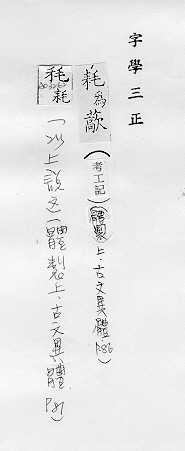 字學三正
耗為歊
(考工記)(體製上.古文異體.P.86)
秏耗
「以上說文」(體製上.古文異體.P.81)